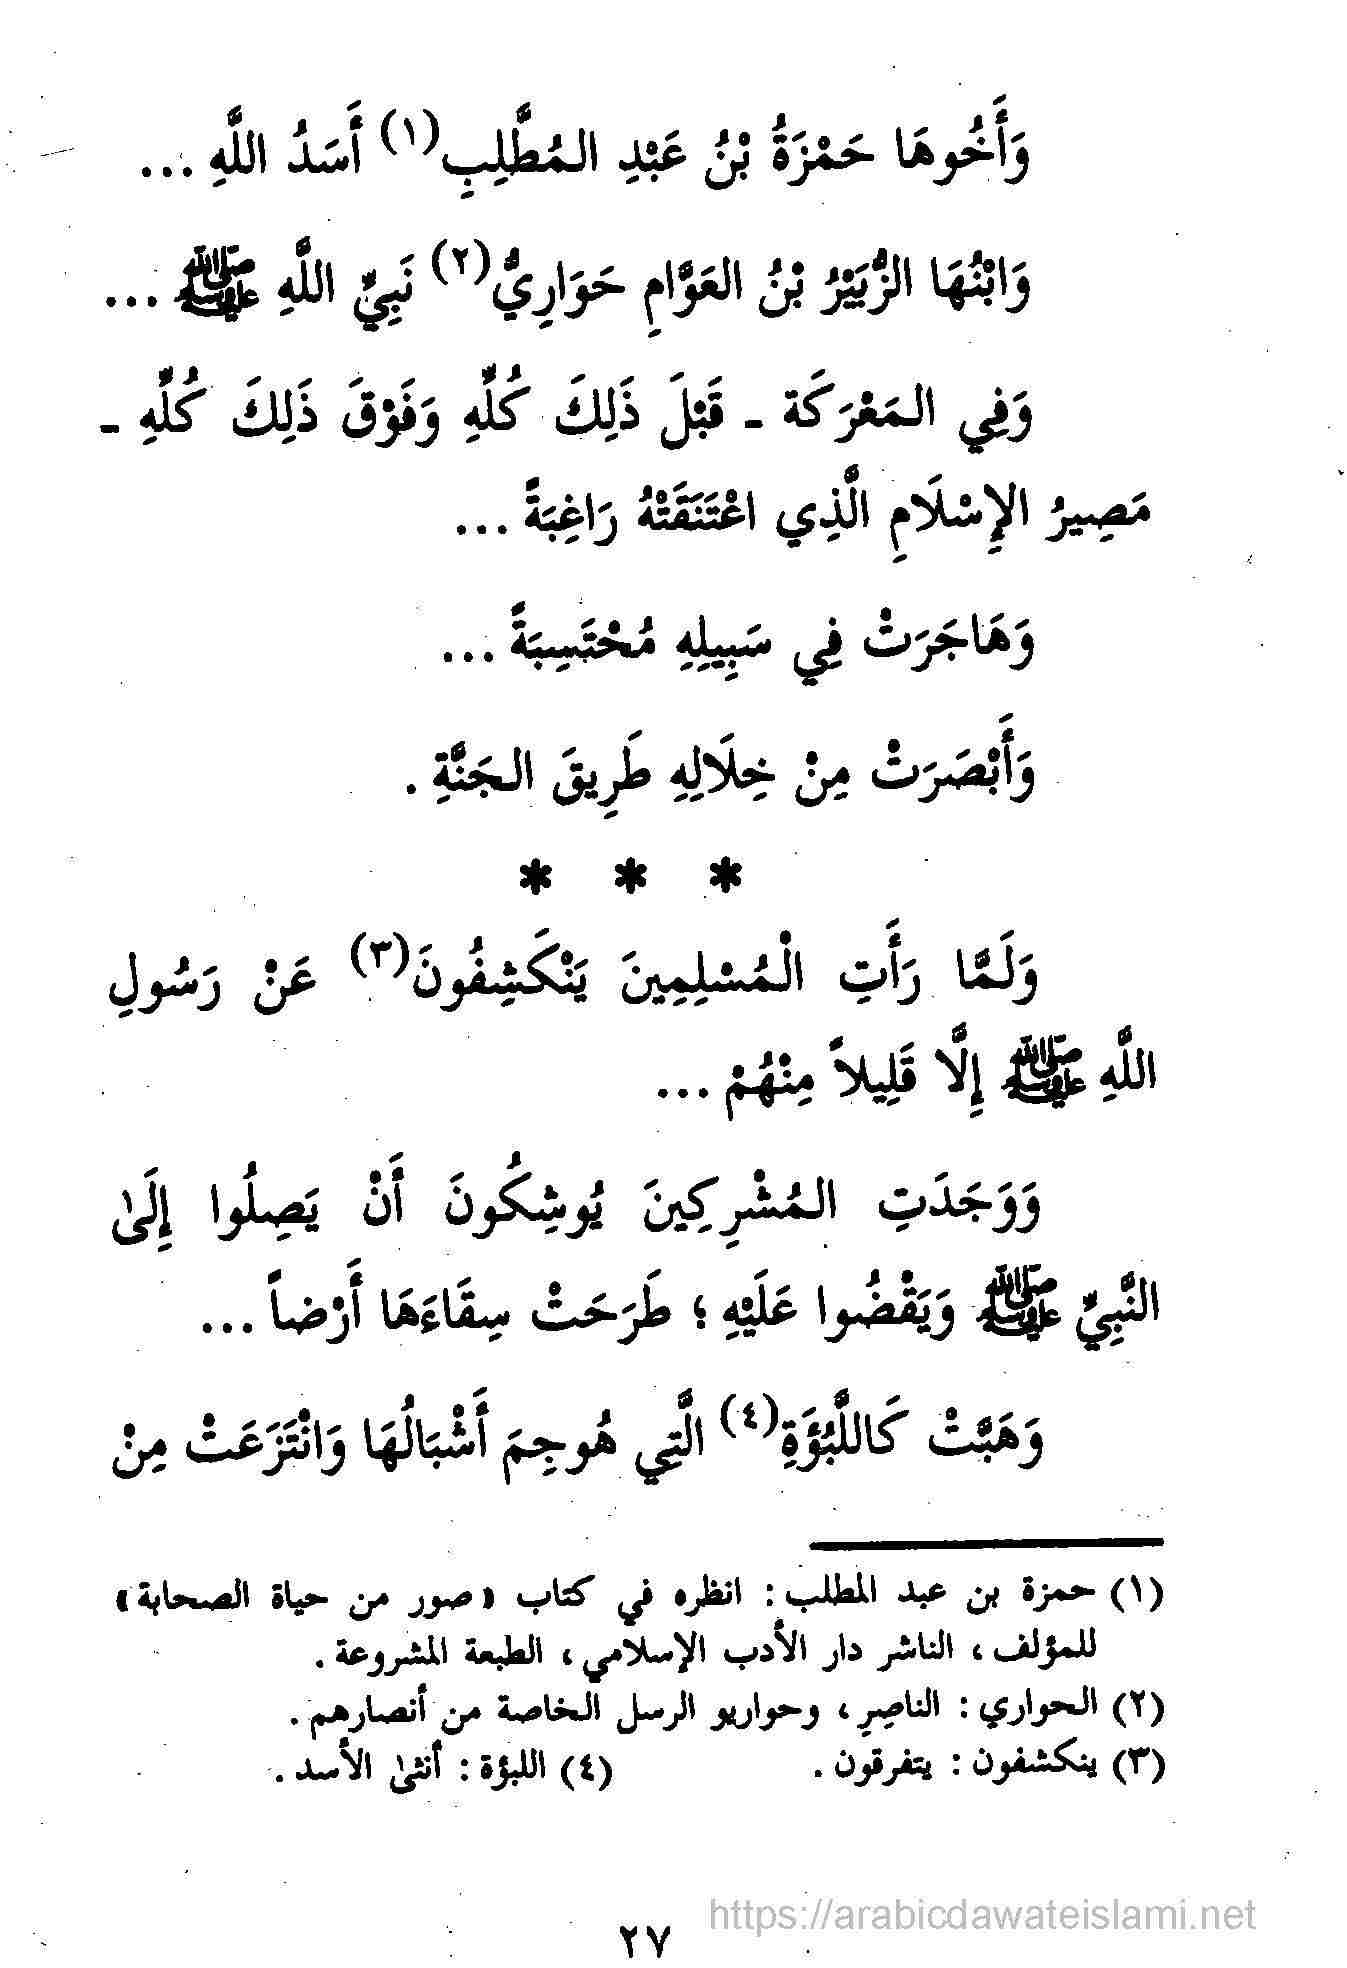 وَأَخُوهَا حَمْزَةُ بْنُ عَبْدِ المُطَّلِبِ(١) أَسَدُ اللَّهِ ...
وَابْنُهَا الزُّبَيْرُ بْنُ العَوَّامِ حَوَارِيُّ(٢) نَبِيِّ اللَّهِ ﷺ ...
وَفِي المَعْرَكَة ـ قَبْلَ ذَلِكَ كُلِّهِ وَفَوْقَ ذَلِكَ كُلِّهِ ـ
مَصِيرُ الإِسْلَامِ الَّذِي اعْتَنَقَتْهُ رَاغِبَةً ...
وَهَاجَرَتْ فِي سَبِيلِهِ مُحْتَسِبَةً ...
وَأَبْصَرَتْ مِنْ خِلَالِهِ طَرِيقَ الجَنَّةِ .
* * *
وَلَمَّا رَأَتِ الْمُسْلِمِينَ يَنْكَشِفُونَ(٣) عَنْ رَسُولِ
اللَّهِ ﷺ إِلَّا قَلِيلاً مِنْهُمْ ...
وَوَجَدَتِ المُشْرِكِينَ يُوشِكُونَ أَنْ يَصِلُوا إِلَىٰ
النَّبِيِّ ﷺ وَيَقْضُوا عَلَيْهِ ؛ طَرَحَتْ سِقَاءَهَا أَرْضاً ...
وَهَبَّتْ كَاللَّبُؤَةِ(٤) الَّتِي هُوجِمَ أَشْبَالُهَا وَانْتَزَعَتْ مِنْ
(١) حمزة بن عبد المطلب : انظره في كتاب « صور من حياة الصحابة »
للمؤلف ، الناشر دار الأدب الإسلامي ، الطبعة المشروعة .
(٢) الحواري : الناصِر ، وحواريو الرسل الخاصة من أنصارهم .
(٣) ينكشفون : يتفرقون . (٤) اللبؤة : أنثىٰ الأسد .
https://arabicdawateislami.net
٢٧